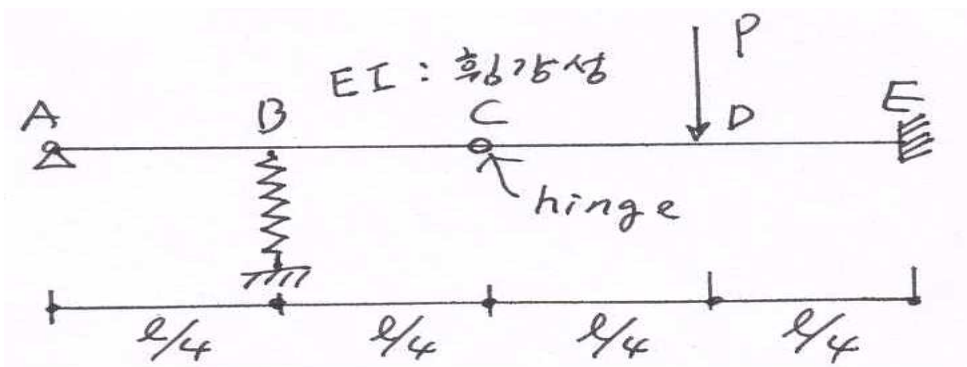 EI : 휨강성
P
A B C D E
hinge
l/4 l/4 l/4 l/4